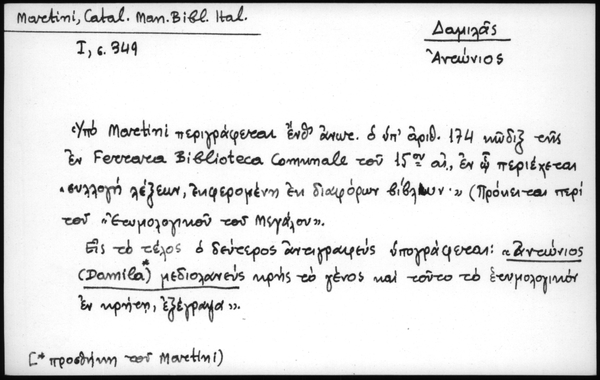 Martini, Catal. Man. Bibl. Ital.
I, σ. 349
Δαμιλᾶς
Ἀντώνιος
Ὑπὸ Martini περιγράφεται ἔνθ' ἀνωτ. ὁ ὑπ' ἀριθ. 174 κῶδιξ τῆς
ἐν Ferrara Biblioteca Comunale τοῦ 15ου αἰ., ἐν ᾧ περιέχεται
«συλλογὴ λέξεων, ἐκφερομένη ἐκ διαφόρων βίβλων·» (Πρόκειται περὶ
τοῦ «Ἐτυμολογικοῦ τοῦ Μεγάλου».
Εἰς τὸ τέλος ὁ δεύτερος ἀντιγραφεὺς ὑπογράφεται: «Ἀντώνιος
(Damila*) μεδιολανεὺς κρὴς τὸ γένος καὶ τοῦτο τὸ ἐτυμολογικὸν
ἐν κρήτῃ, ἐξέγραψα».
[* προσθήκη τοῦ Martini)